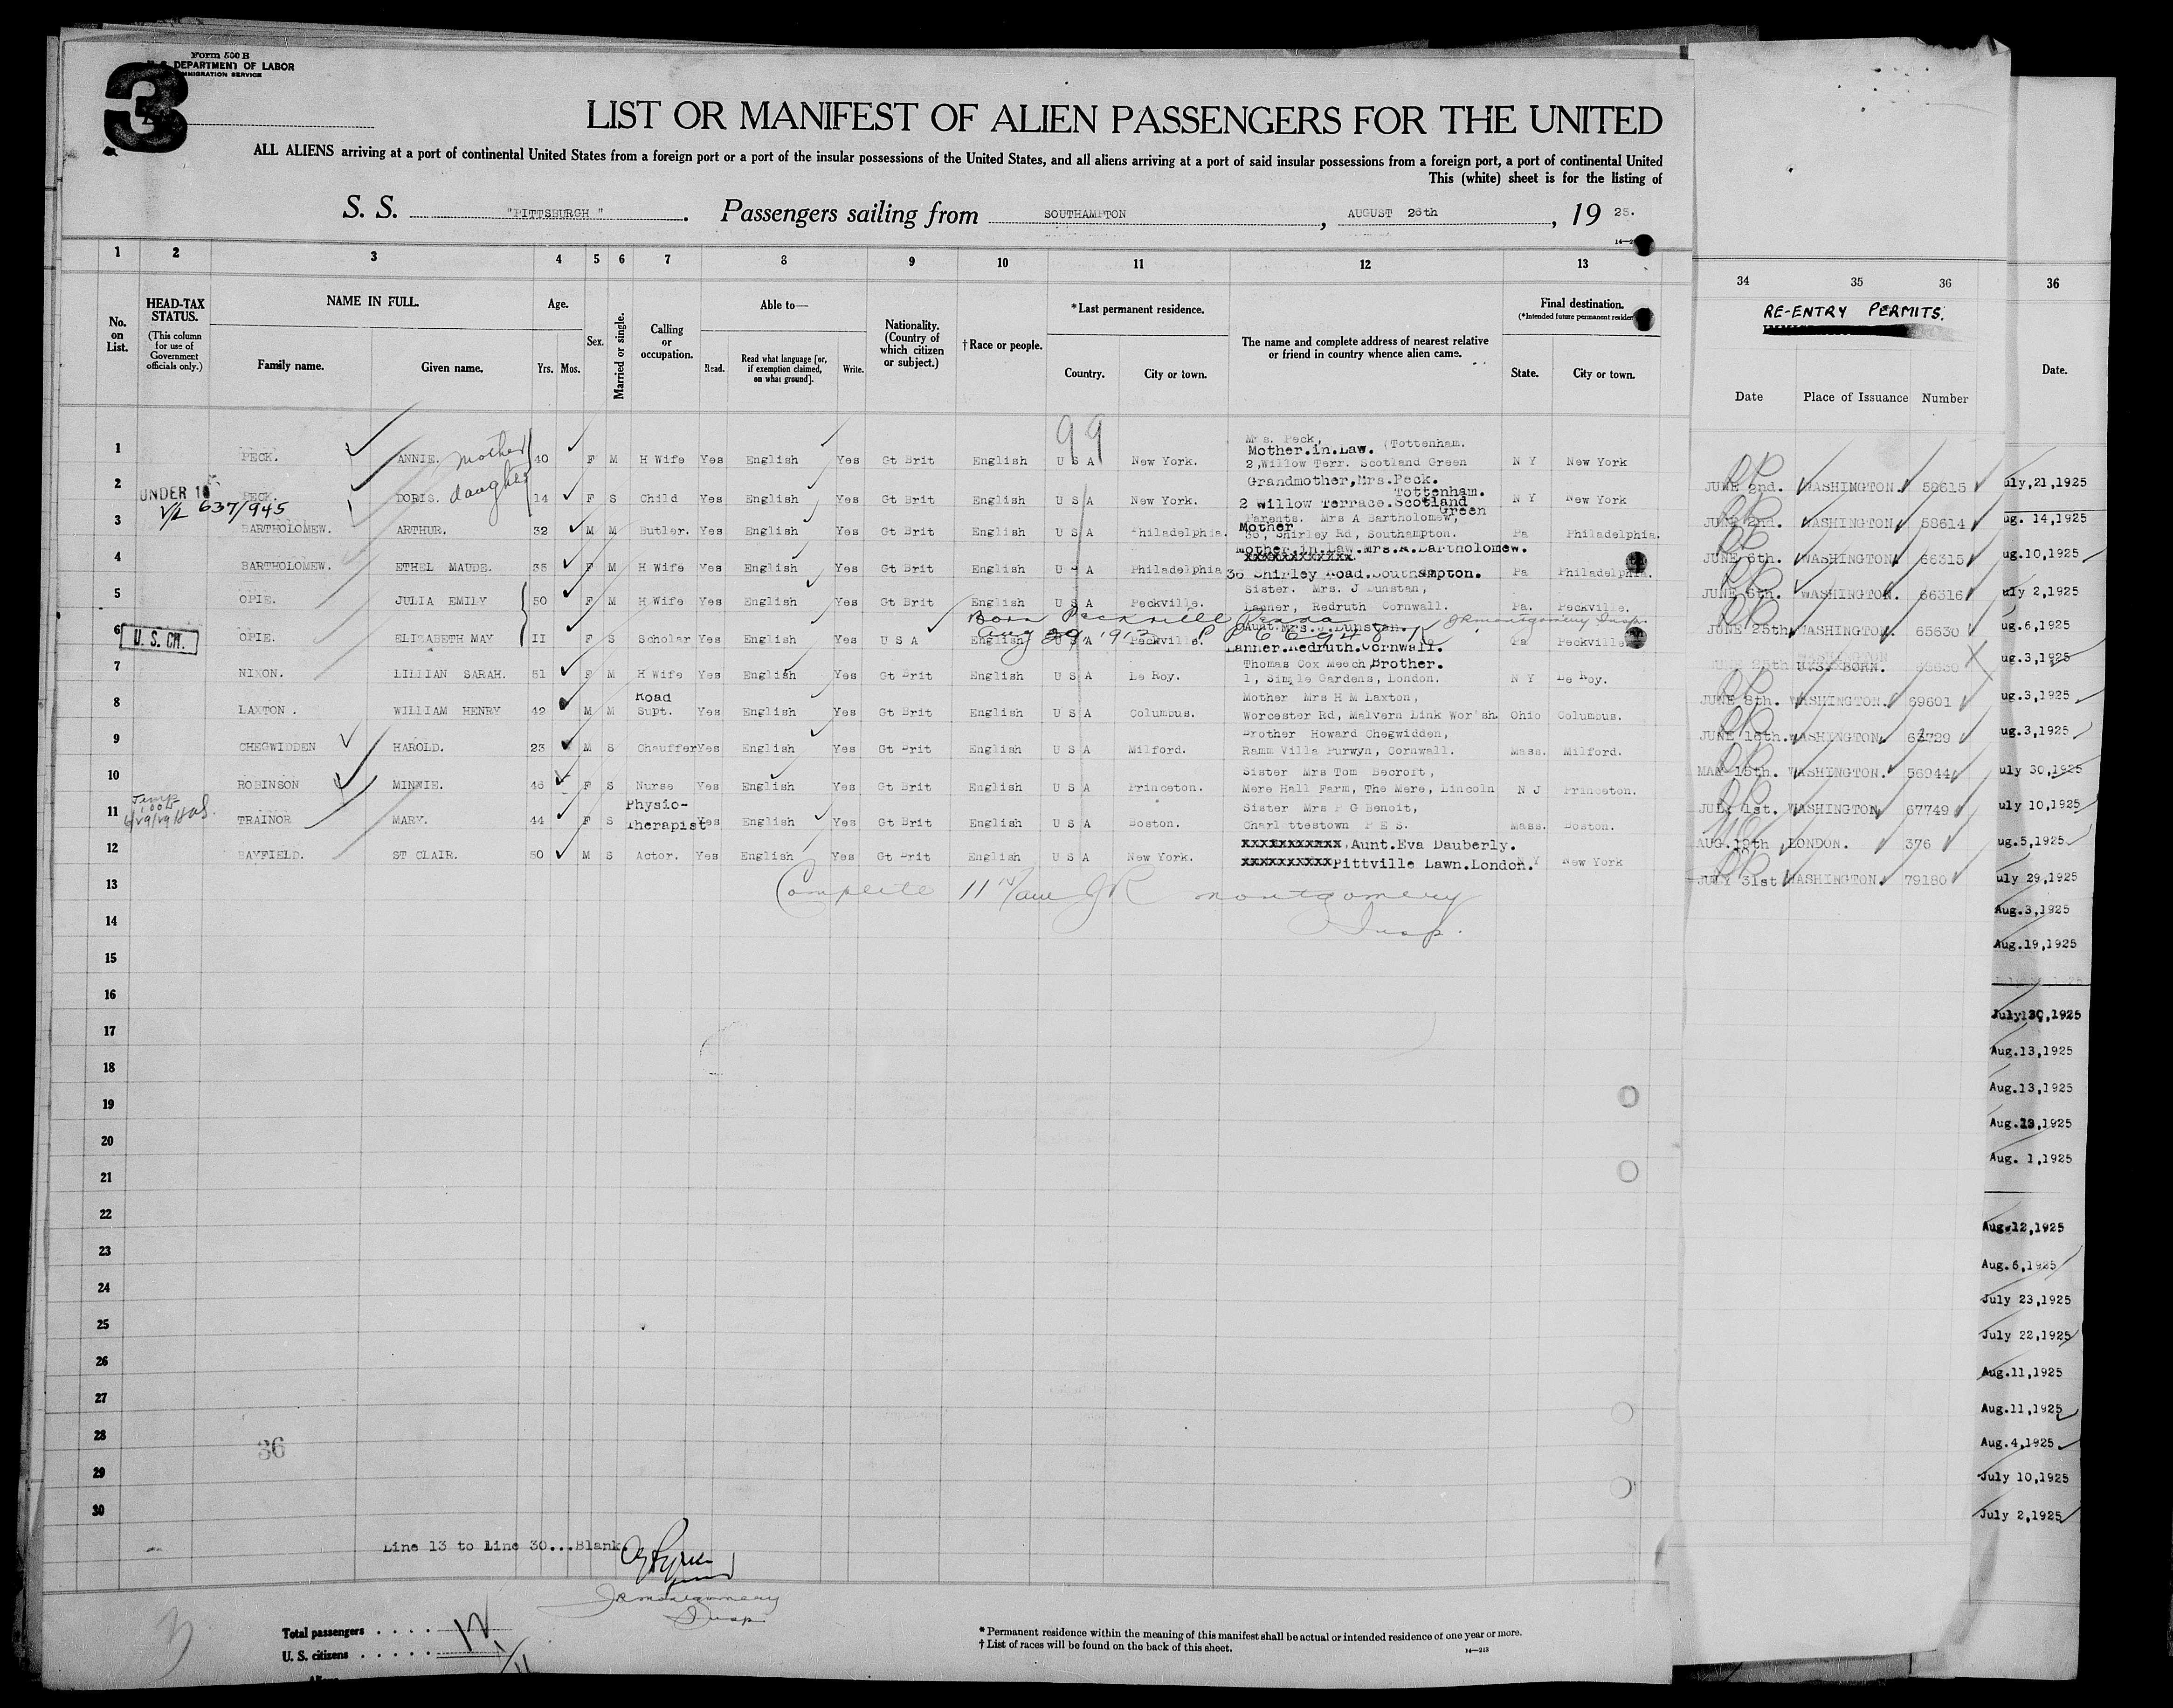 Form 500 B
U. S. DEPARTMENT OF LABOR
IMMIGRATION SERVICE
3
LIST OR MANIFEST OF ALIEN PASSENGERS FOR THE UNITED
ALL ALIENS arriving at a port of continental United States from a foreign port or a port of the insular possessions of the United States, and all aliens arriving at a port of said insular possessions from a foreign port, a port of continental United
This (white) sheet is for the listing of
S. S. "PITTSBURGH". Passengers sailing from SOUTHAMPTON, AUGUST 26th, 19 25.
1 2 3 4 5 6 7 8 9 10 11 12 13
No. on List.
HEAD-TAX STATUS. (This column for use of Government officials only.)
NAME IN FULL. Family name. Given name.
Age. Yrs. Mos.
Sex.
Married or single.
Calling or occupation.
Able to— Read. Read what language [or, if exemption claimed, on what ground]. Write.
Nationality. (Country of which citizen or subject.)
†Race or people.
*Last permanent residence. Country. City or town.
The name and complete address of nearest relative or friend in country whence alien came.
Final destination. (*Intended future permanent residence) State. City or town.
34 35 36
RE-ENTRY PERMITS.
Date Place of Issuance Number
36
Date.
99
1 PECK. ANNIE. Mother 40 F M H Wife Yes English Yes Gt Brit English U S A New York. Mrs. Peck, (Tottenham. Mother.in.Law. 2,Willow Terr. Scotland Green N Y New York
2 UNDER 16 V/L 637/945 PECK. DORIS. daughter 14 F S Child Yes English Yes Gt Brit English U S A New York. Grandmother,Mrs.Peck. Tottenham. 2 Willow Terrace.Scotland Green N Y New York
3 BARTHOLOMEW. ARTHUR. 32 M M Butler. Yes English Yes Gt Brit English U S A Philadelphia. Parents. Mrs A Bartholomew, Mother 36, Shirley Rd, Southampton. Pa Philadelphia.
4 BARTHOLOMEW. ETHEL MAUDE. 35 F M H Wife Yes English Yes Gt Brit English U S A Philadelphia Mother.in.Law.Mrs.A.Bartholomew. xxxxxxxxxxxx. 36 Shirley Road.Southampton. Pa Philadelphia.
5 OPIE. JULIA EMILY 50 F M H Wife Yes English Yes Gt Brit English U S A Peckville. Sister. Mrs. J Dunstan, Lanner, Redruth Cornwall. Pa. Peckville.
Born Peckville Penna JRMontgomery Insp.
6 U. S. CIT. OPIE. ELIZABETH MAY II F S Scholar Yes English Yes U S A English U S A Peckville. Aunt.Mrs.J.Dunstan. Lanner.Redruth.Cornwall. Pa Peckville.
7 NIXON. LILLIAN SARAH. 51 F M H Wife Yes English Yes Gt Brit English U S A Le Roy. Thomas Cox Meech,Brother. N Y Le Roy.
8 LAXTON. WILLIAM HENRY 42 M M Road Supt. Yes English Yes Gt Brit English U S A Columbus. Mother Mrs H M Laxton, Worcester Rd, Malvern Link Wor'sh. Ohio Columbus.
9 CHEGWIDDEN HAROLD. 23 M S Chauffer Yes English Yes Gt Brit English U S A Milford. Brother Howard Chegwidden, Ramm Villa Purwyn, Cornwall. Mass. Milford.
10 ROBINSON MINNIE. 46 F S Nurse Yes English Yes Gt Brit English U S A Princeton. Sister Mrs Tom Becroft, Mere Hall Farm, The Mere, Lincoln N J Princeton.
11 TRAINOR MARY. 44 F S Physio-Therapist Yes English Yes Gt Brit English U S A Boston. Sister Mrs P G Benoit, Charlottestown P E S. Mass. Boston.
12 BAYFIELD. ST CLAIR. 50 M S Actor. Yes English Yes Gt Brit English U S A New York. xxxxxxxxxxx,Aunt.Eva Dauberly. xxxxxxxxxxPittville Lawn.London. N Y New York
13 Complete JR Montgomery
14 Insp.
15
16
17
18
19
20
21
22
23
24
25
26
27
28
29
30
36
Line 13 to Line 30...Blank.
JRMontgomery
Insp.
3
Total passengers 12
U. S. citizens 1
Aliens 11
* Permanent residence within the meaning of this manifest shall be actual or intended residence of one year or more.
† List of races will be found on the back of this sheet.
14—213
JUNE 2nd. WASHINGTON. 58615
JUNE 2nd. WASHINGTON 58614
JUNE 6th. WASHINGTON. 66315
JUNE 6th. WASHINGTON. 66316
JUNE 25th WASHINGTON. 65630
JUNE 25th U.S. BORN. 65630
JUNE 8th. WASHINGTON. 69601
JUNE 16th. WASHINGTON.
MAY 15th. WASHINGTON. 56944
JULY 1st. WASHINGTON 67749
AUG. 19th LONDON. 376
JULY 31st WASHINGTON. 79180
uly,21,1925
ug. 14,1925
ug.10,1925
uly 2,1925
ug.6,1925
ug.3,1925
ug.3,1925
ug.3,1925
uly 30,1925
uly 10,1925
ug.5,1925
uly 29,1925
Aug.3,1925
Aug.19,1925
July 30,1925
Aug.13,1925
Aug.13,1925
Aug.13,1925
Aug. 1,1925
Aug.12,1925
Aug.6,1925
July 23,1925
July 22,1925
Aug.11,1925
Aug.11,1925
Aug.4,1925
July 10,1925
July 2,1925